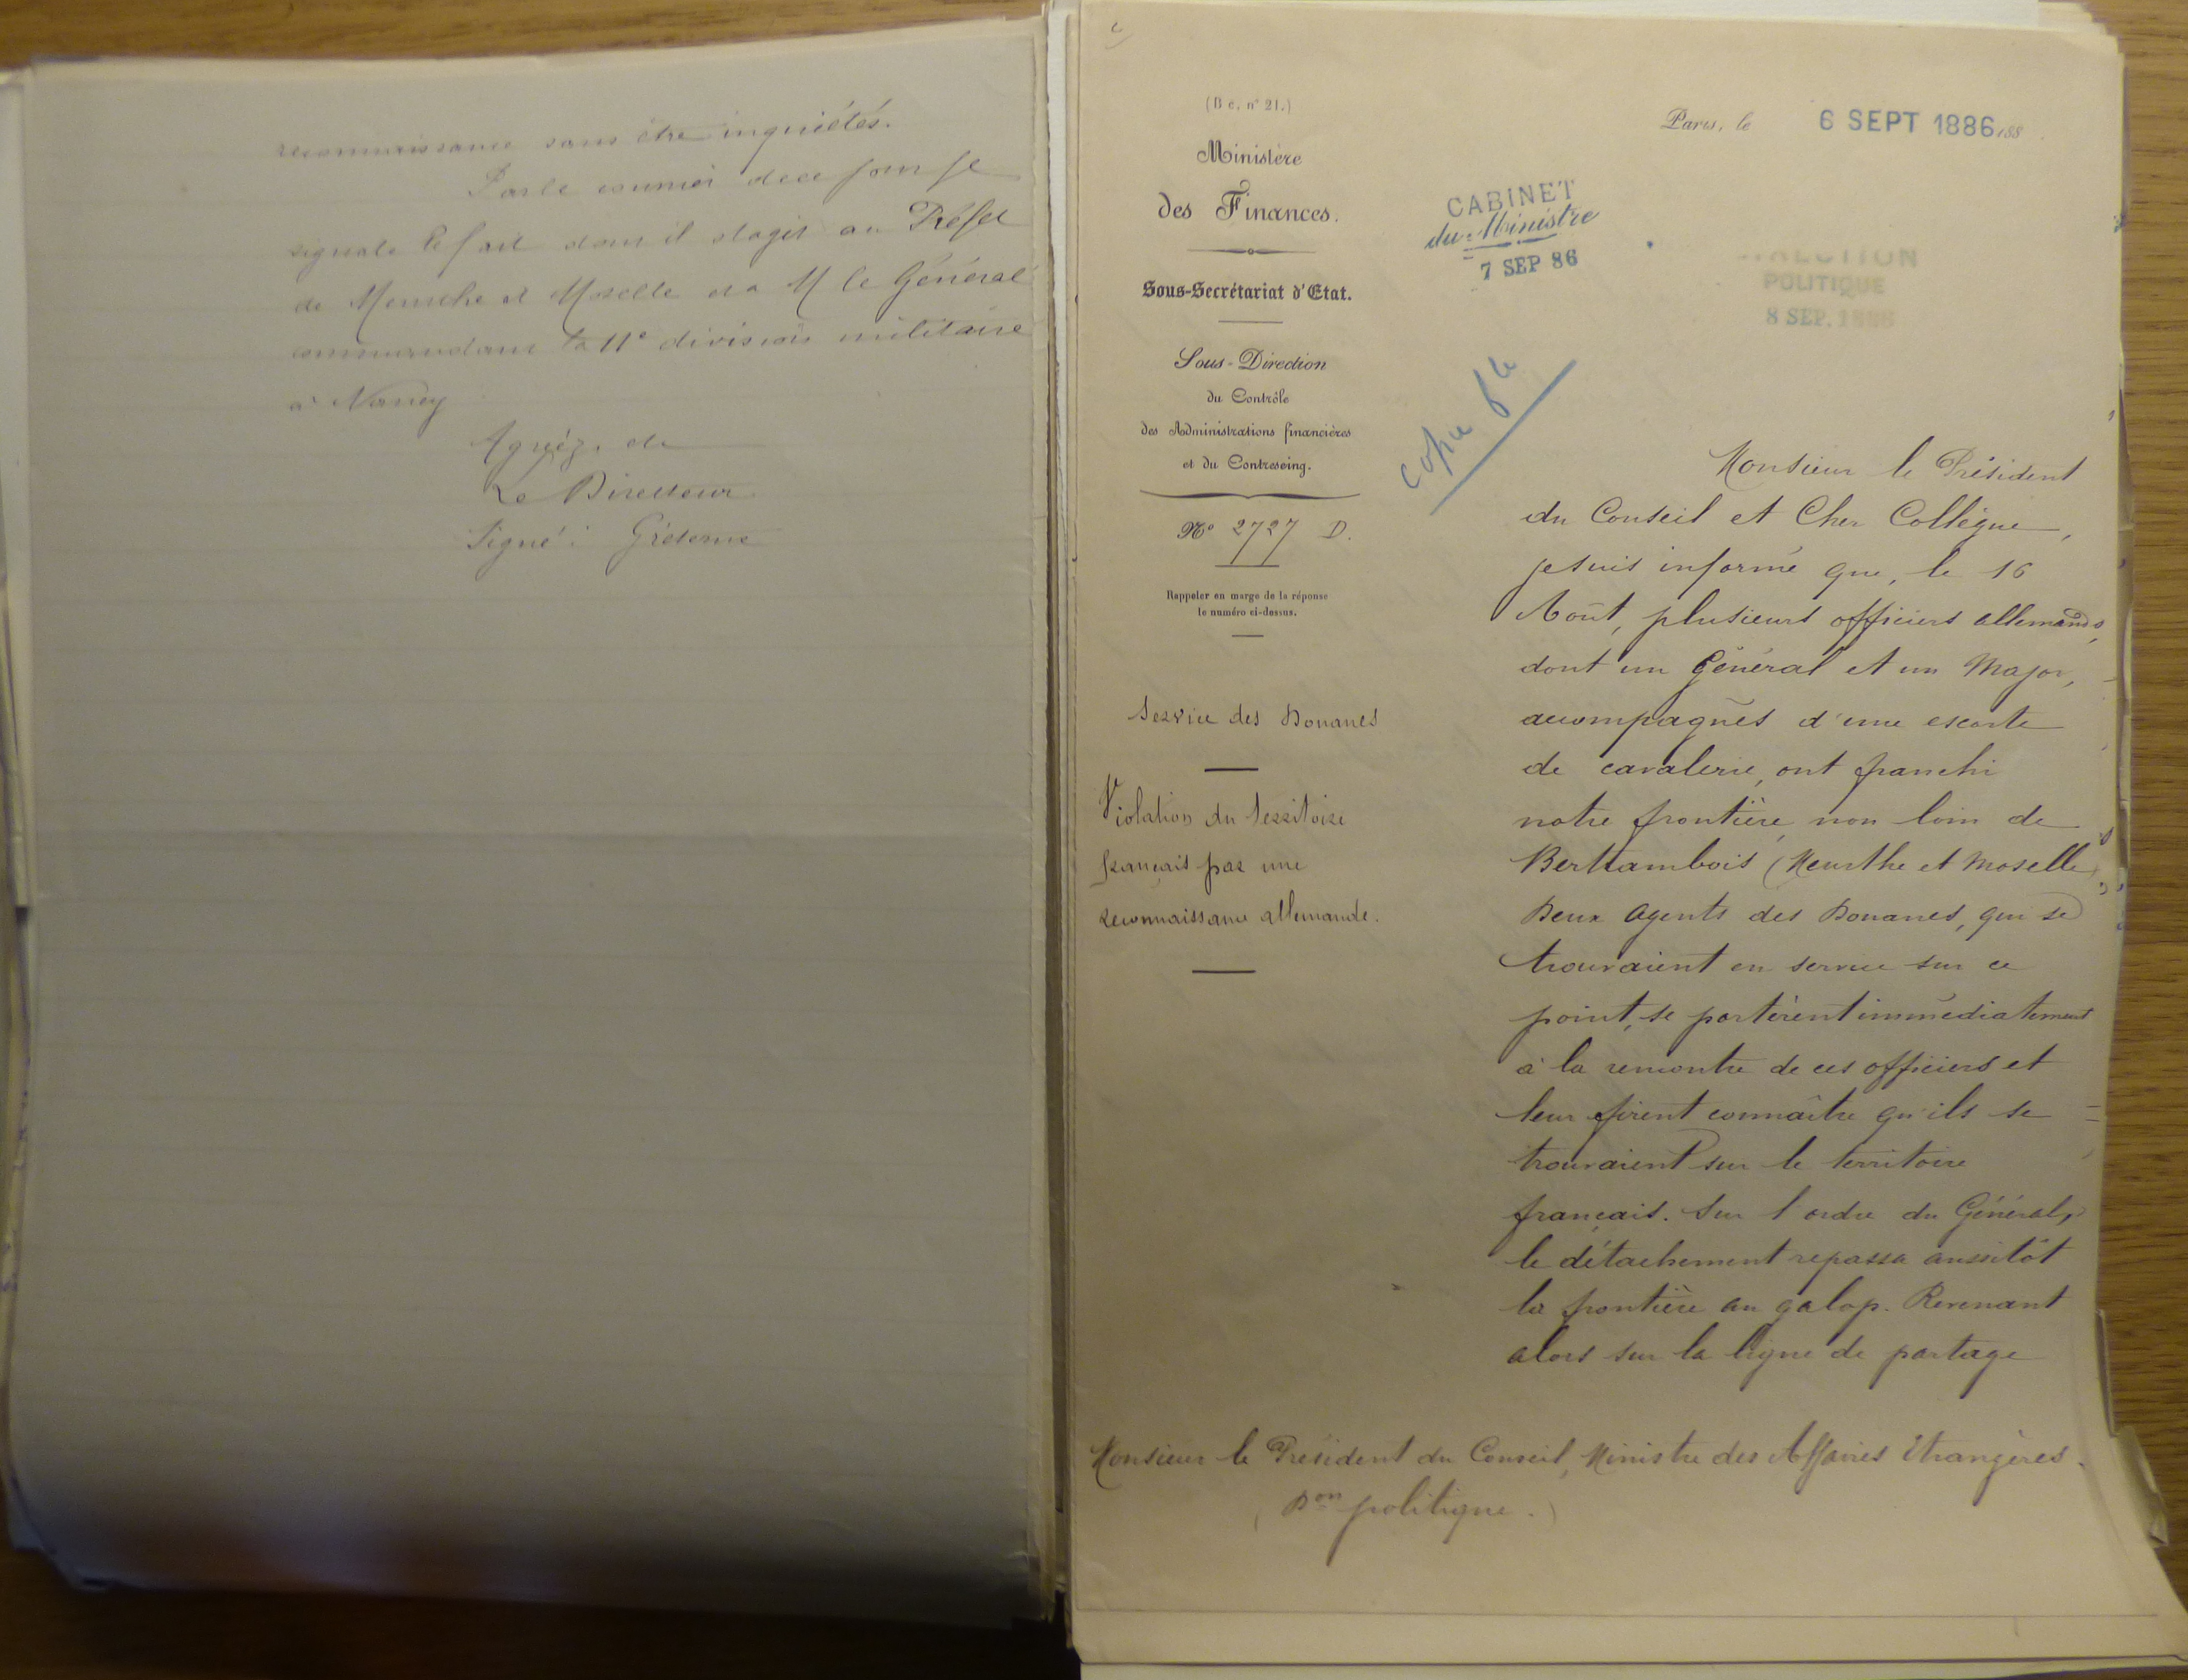 reconnaissance sans être inquiétés.
Par le courrier de ce jour je
signale le fait dont il s'agit au Préfet
de Meurthe et Moselle et à M le Général
commandant la 11e division militaire
à Nancy
Agréez, etc
Le Directeur
Signé :
(B e, n° 21.)
Ministère
des Finances.
Sous-Secrétariat d'Etat.
Sous-Direction
du Contrôle
des Administrations financières
et du Contreseing.
N° 2727 D.
Rappeler en marge de la réponse
le numéro ci-dessus.
Service des Douanes
Violation du territoire
français par une
reconnaissance allemande.
Paris, le 6 SEPT 1886 188
CABINET
du Ministre
7 SEP 86
DIRECTION
POLITIQUE
8 SEP. 1886
copie
Monsieur le Président
du Conseil et Cher Collègue,
je suis informé que, le 16
Août, plusieurs officiers allemands,
dont un Général et un Major,
accompagnés d'une escorte
de cavalerie, ont franchi
notre frontière, non loin de
Bertrambois (Meurthe et Moselle)
Deux agents des Douanes, qui se
trouvaient en service sur ce
point, se portèrent immédiatement
à la rencontre de ces officiers et
leur firent connaître qu'ils se
trouvaient sur le territoire
français. Sur l'ordre du Général,
le détachement repassa aussitôt
la frontière au galop. Revenant
alors sur la ligne de partage
Monsieur le Président du Conseil, Ministre des Affaires Etrangères.
(Don politique.)